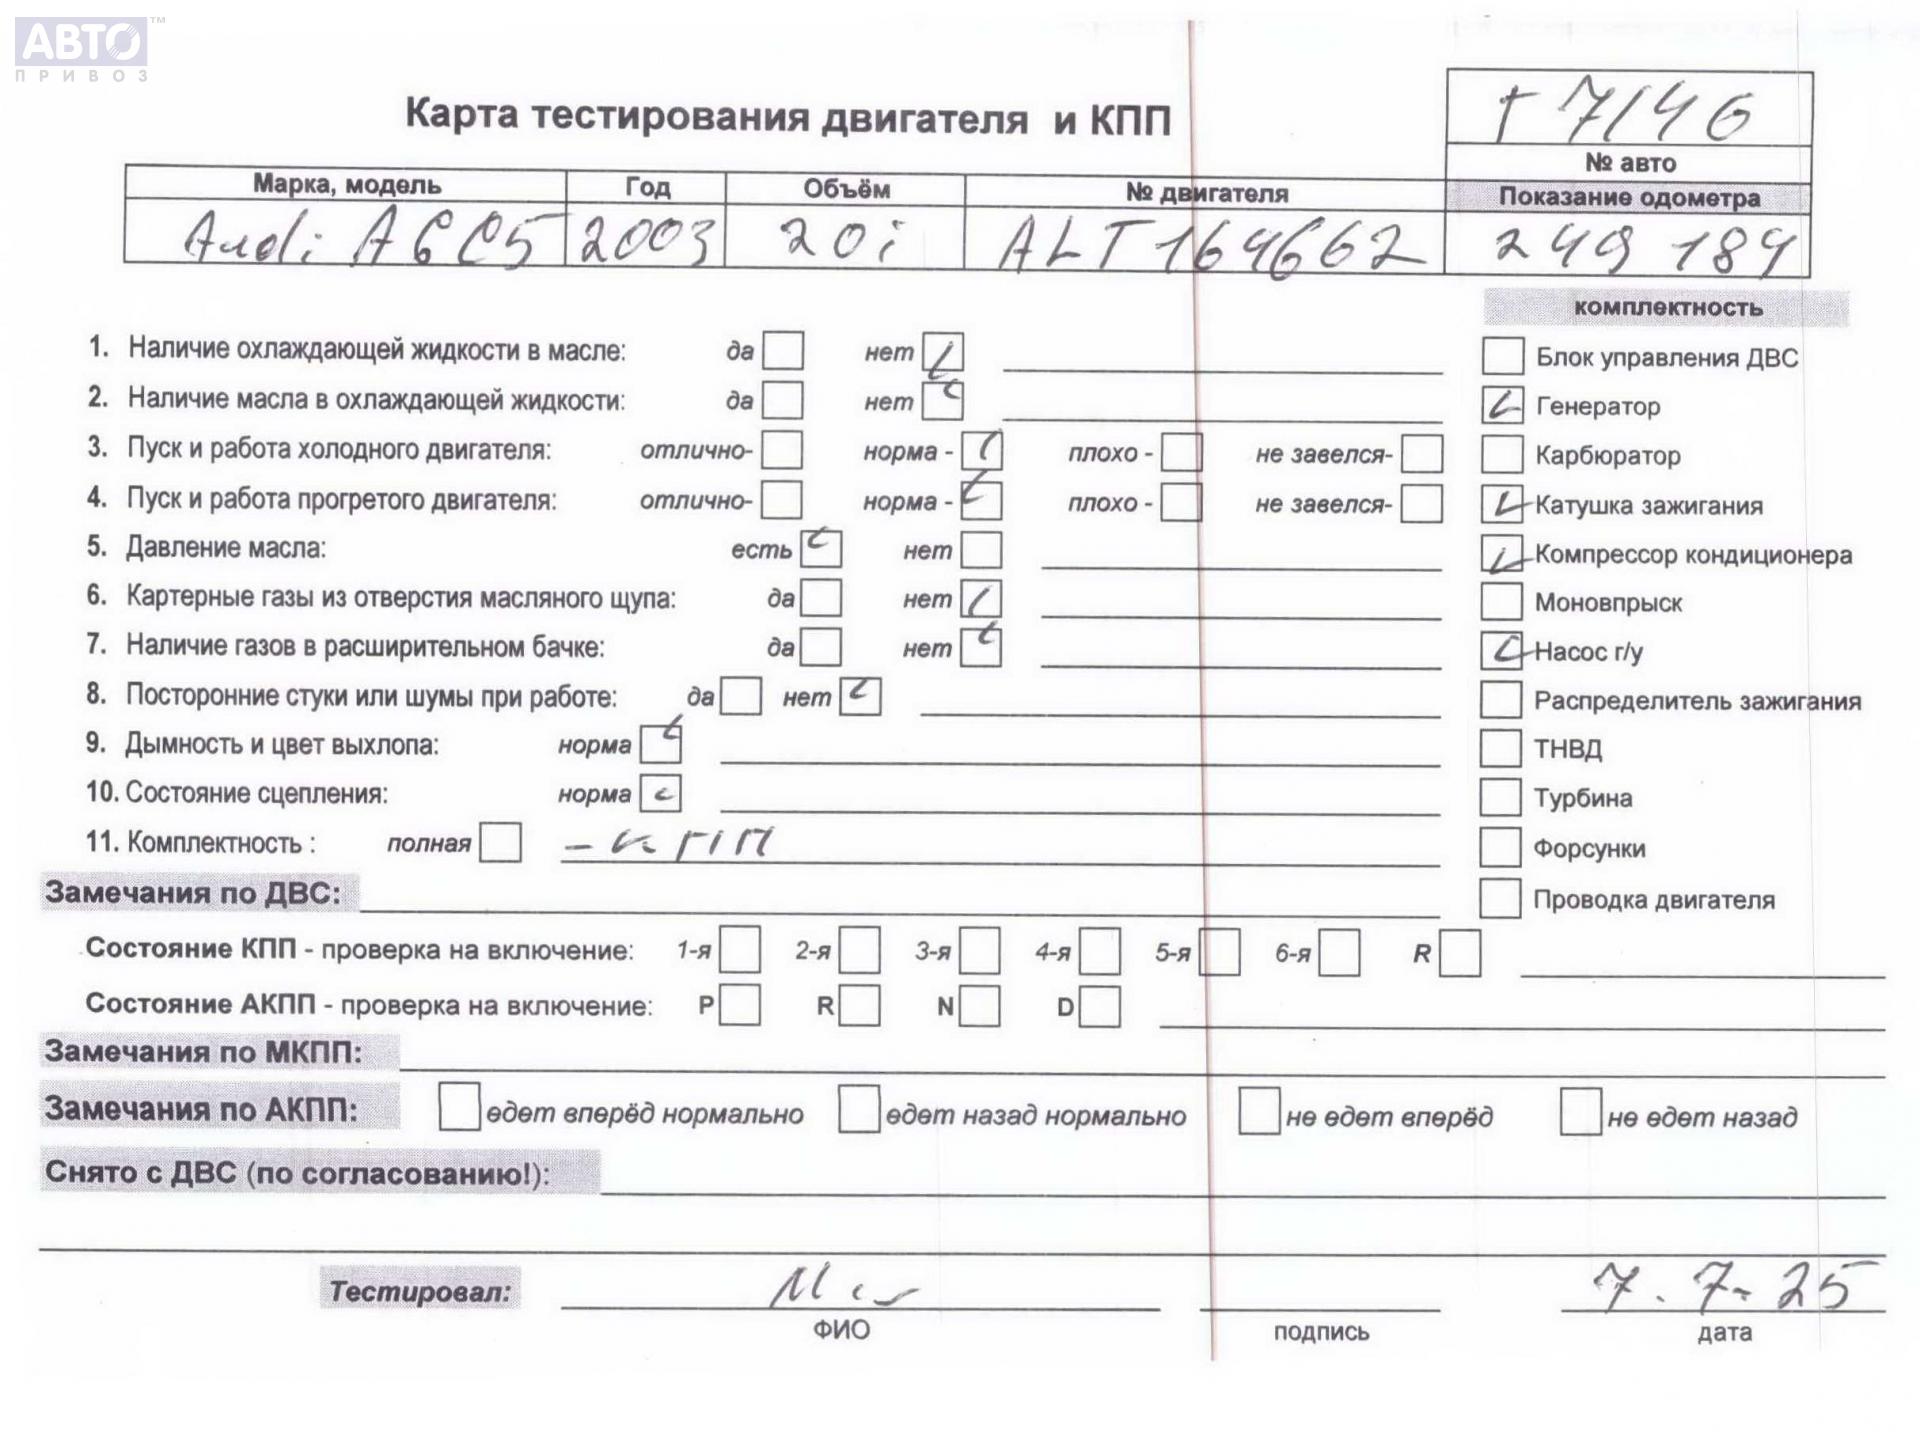 АВТО™
ПРИВОЗ
Карта тестирования двигателя и КПП
т 7/46
№ авто
Марка, модель Год Объём № двигателя Показание одометра
Audi A6 C5 2003 20i ALT164662 249 184
комплектность
1. Наличие охлаждающей жидкости в масле: да нет
Блок управления ДВС
2. Наличие масла в охлаждающей жидкости: да нет
Генератор
3. Пуск и работа холодного двигателя: отлично- норма - плохо - не завелся-
Карбюратор
4. Пуск и работа прогретого двигателя: отлично- норма - плохо - не завелся-
Катушка зажигания
5. Давление масла: есть нет
Компрессор кондиционера
6. Картерные газы из отверстия масляного щупа: да нет
Моновпрыск
7. Наличие газов в расширительном бачке: да нет
Насос г/у
8. Посторонние стуки или шумы при работе: да нет
Распределитель зажигания
9. Дымность и цвет выхлопа: норма
ТНВД
10. Состояние сцепления: норма
Турбина
11. Комплектность : полная - кпп
Форсунки
Замечания по ДВС:
Проводка двигателя
Состояние КПП - проверка на включение: 1-я 2-я 3-я 4-я 5-я 6-я R
Состояние АКПП - проверка на включение: P R N D
Замечания по МКПП:
Замечания по АКПП: едет вперёд нормально едет назад нормально не едет вперёд не едет назад
Снято с ДВС (по согласованию!):
Тестировал: 7.7-25
ФИО подпись дата